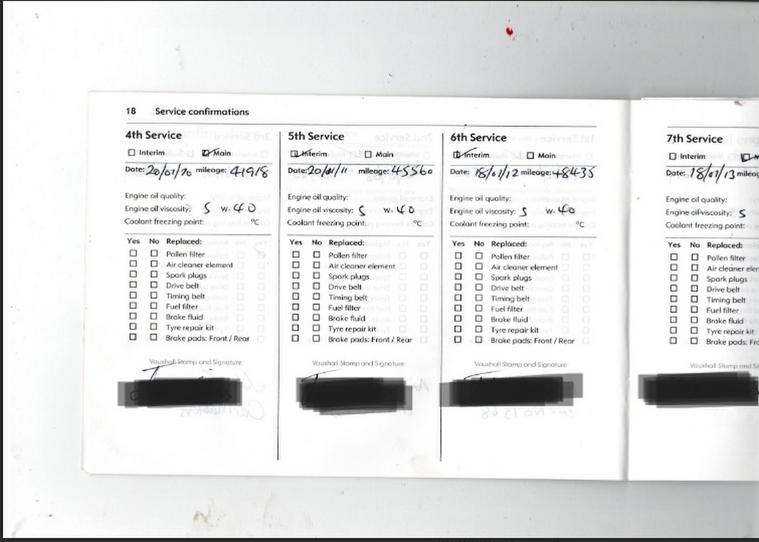 18 Service confirmations
4th Service
Interim Main
Date: 20/01/10 mileage: 41918
Engine oil quality:
Engine oil viscosity: 5 W- 40
Coolant freezing point: °C
Yes No Replaced:
Pollen filter
Air cleaner element
Spark plugs
Drive belt
Timing belt
Fuel filter
Brake fluid
Tyre repair kit
Brake pads: Front / Rear
Vauxhall Stamp and Signature
5th Service
Interim Main
Date: 20/01/11 mileage: 45560
Engine oil quality:
Engine oil viscosity: 5 W- 40
Coolant freezing point: °C
Yes No Replaced:
Pollen filter
Air cleaner element
Spark plugs
Drive belt
Timing belt
Fuel filter
Brake fluid
Tyre repair kit
Brake pads: Front / Rear
Vauxhall Stamp and Signature
6th Service
Interim Main
Date: 18/01/12 mileage: 48435
Engine oil quality:
Engine oil viscosity: 5 W- 40
Coolant freezing point: °C
Yes No Replaced:
Pollen filter
Air cleaner element
Spark plugs
Drive belt
Timing belt
Fuel filter
Brake fluid
Tyre repair kit
Brake pads: Front / Rear
Vauxhall Stamp and Signature
7th Service
Interim
Date: 18/01/13 mileage
Engine oil quality:
Engine oil viscosity: 5
Coolant freezing point:
Yes No Replaced:
Pollen filter
Air cleaner
Spark plugs
Drive belt
Timing belt
Fuel filter
Brake fluid
Tyre repair kit
Brake pads:
Vauxhall Stamp and